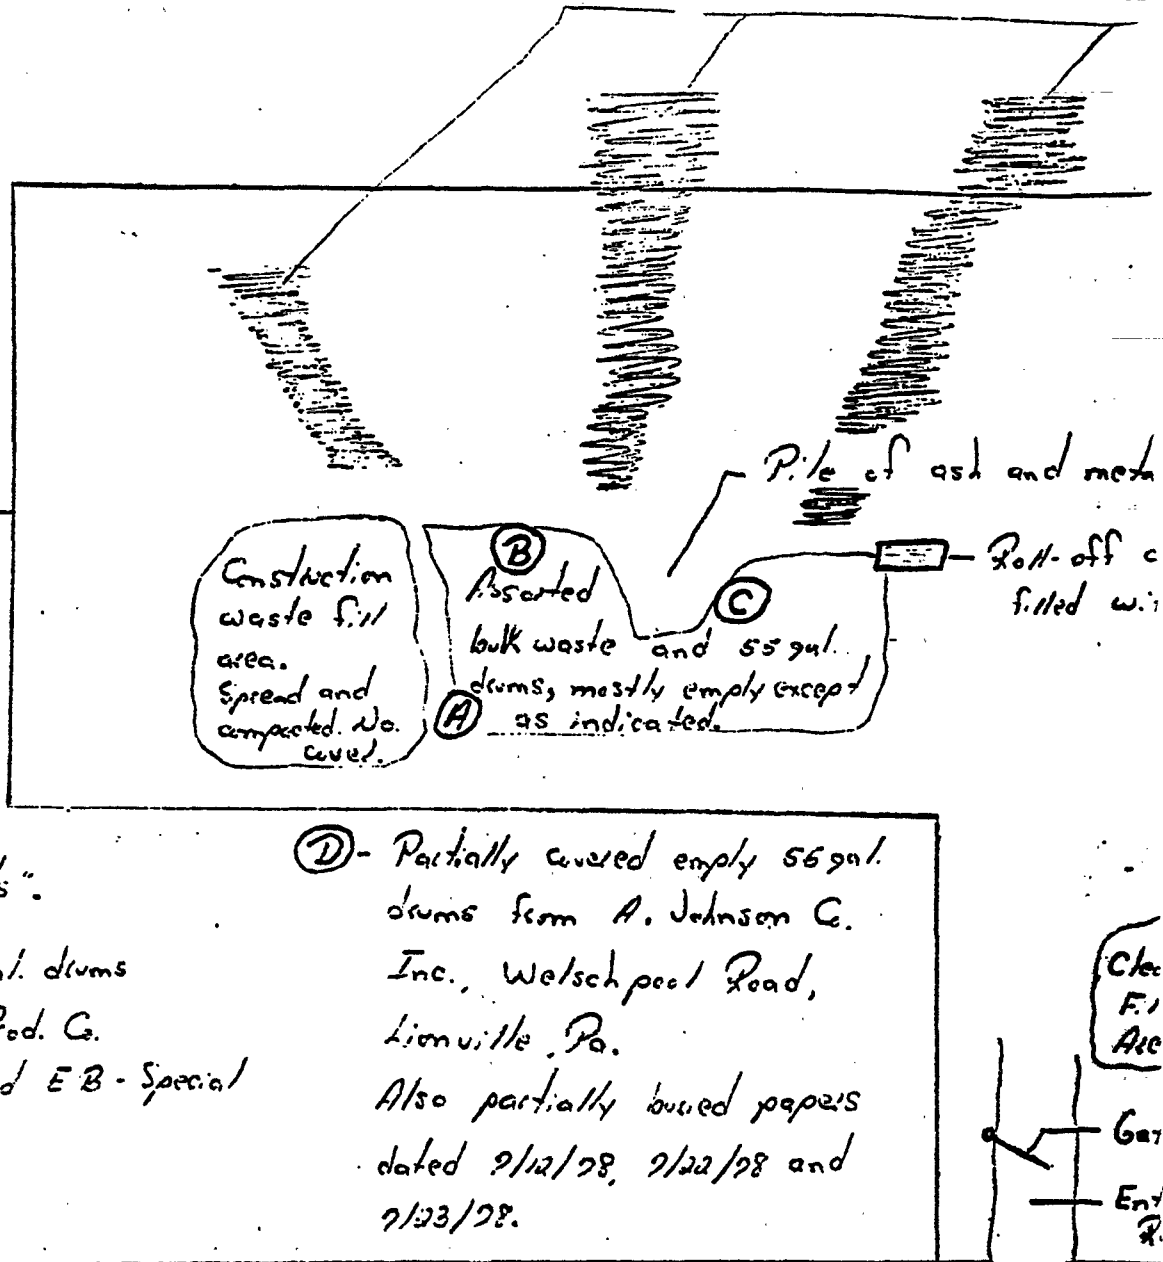 Pile of ash and meta
Roll-off c
filled wi
B
C
A
Construction
waste fill
area.
Spread and
compacted. No.
cover.
Assorted
bulk waste and 55 gal.
drums, mostly empty except
as indicated.
s".
l. drums
Prod. Co.
d EB - Special
D - Partially covered empty 55 gal.
drums from A. Johnson Co.
Inc., Welschpool Road,
Lionville, Pa.
Also partially buried papers
dated 7/12/78, 7/22/78 and
7/23/78.
Clea
Fil
Are
Gat
Ent